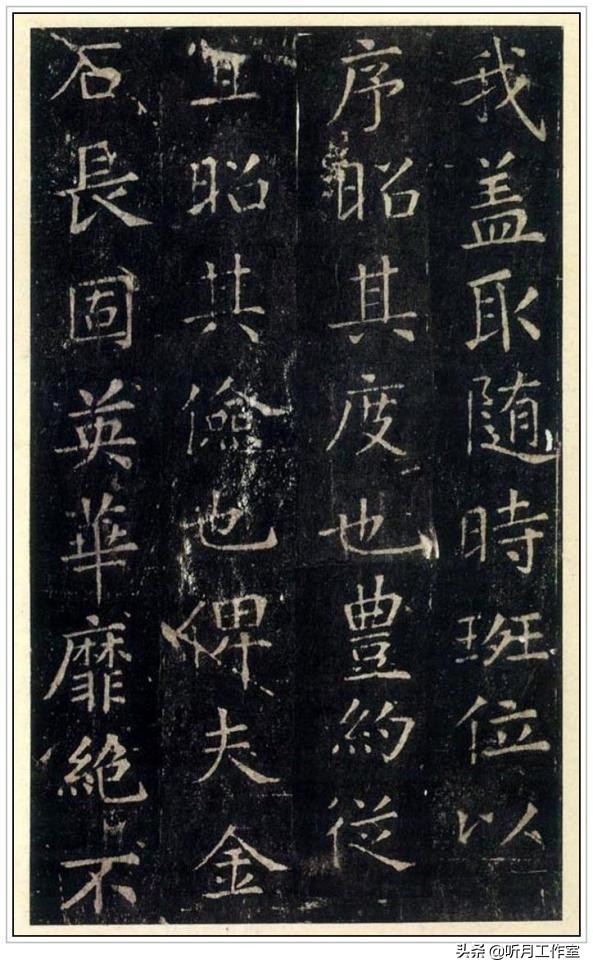 我盖取随時班位以
序昭其度也豊約従
宜昭共儉也俾夫金
石長固英華靡絶不
头条 @听月工作室